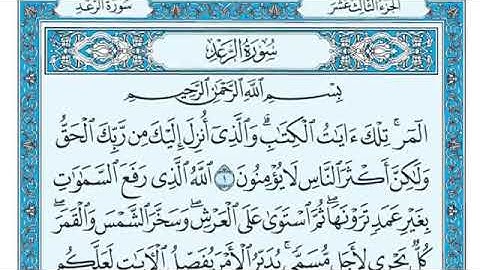 سُورَةُ الرَّعْدِ
الجُزءُ الثَّالِثَ عَشَرَ
سُورَةُ الرَّعْدِ
بِسْمِ ٱللَّهِ ٱلرَّحْمَٰنِ ٱلرَّحِيمِ
الٓمٓر ۚ تِلْكَ ءَايَٰتُ ٱلْكِتَٰبِ ۗ وَٱلَّذِىٓ أُنزِلَ إِلَيْكَ مِن رَّبِّكَ ٱلْحَقُّ
وَلَٰكِنَّ أَكْثَرَ ٱلنَّاسِ لَا يُؤْمِنُونَ ١ ٱللَّهُ ٱلَّذِى رَفَعَ ٱلسَّمَٰوَٰتِ
بِغَيْرِ عَمَدٍ تَرَوْنَهَا ۖ ثُمَّ ٱسْتَوَىٰ عَلَى ٱلْعَرْشِ ۖ وَسَخَّرَ ٱلشَّمْسَ وَٱلْقَمَرَ ۖ
كُلٌّ يَجْرِى لِأَجَلٍ مُّسَمًّى ۚ يُدَبِّرُ ٱلْأَمْرَ يُفَصِّلُ ٱلْءَايَٰتِ لَعَلَّكُم